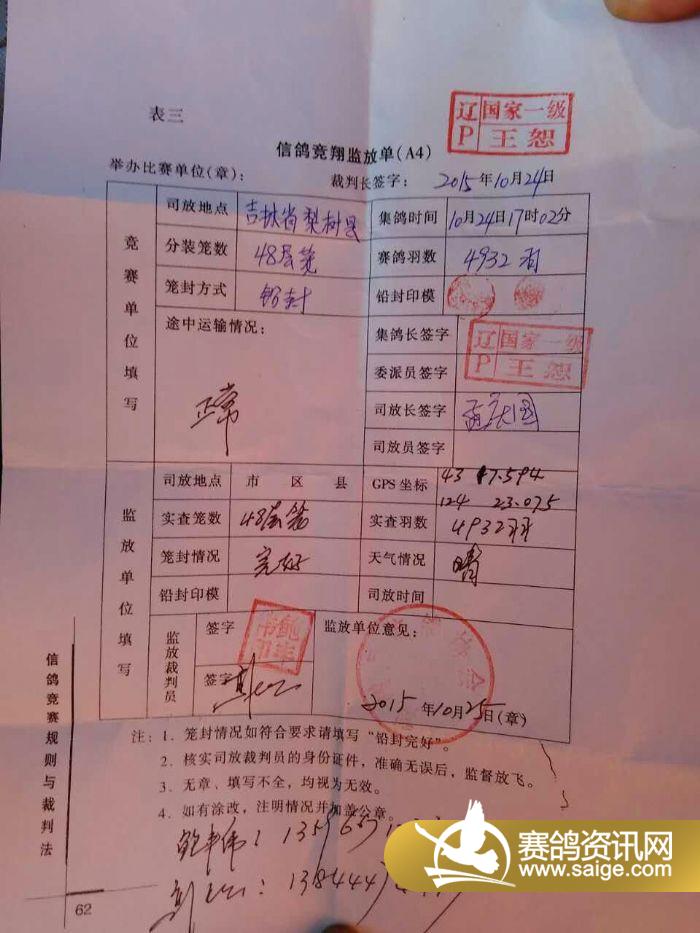 表三
辽P 国家一级 王恕
信鸽竞翔监放单(A4)
举办比赛单位(章): 裁判长签字: 2015年10月24日
竞赛单位填写
司放地点 吉林省梨树县 集鸽时间 10月24日17时02分
分装笼数 48层笼 赛鸽羽数 4932羽
笼封方式 铅封 铅封印模
途中运输情况: 正常
集鸽长签字
辽P 国家一级 王恕
委派员签字
司放长签字
司放员签字
监放单位填写
司放地点 市 区 县 GPS坐标 43 17.594
124 23.075
实查笼数 48层笼 实查羽数 4932羽
笼封情况 完好 天气情况 晴
铅封印模 司放时间
监放裁判员
签字
签字
监放单位意见:
2015年10月25日(章)
注:1．笼封情况如符合要求请填写“铅封完好”。
2．核实司放裁判员的身份证件，准确无误后，监督放飞。
3．无章、填写不全，均视为无效。
4．如有涂改，注明情况并加盖公章。
信鸽竞赛规则与裁判法
62
赛鸽资讯网
www.saige.com